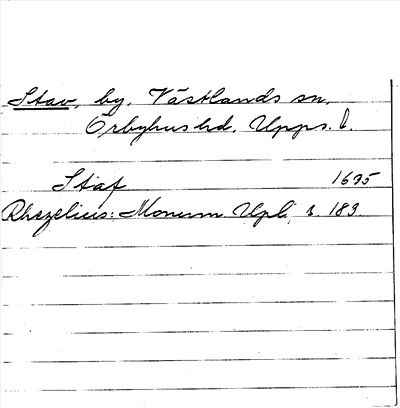 Stav, by, Västlands sn,
Örbyhus hd. Upps. l.
Staf 1635
Rhezelius: Monum Upl, s. 183.